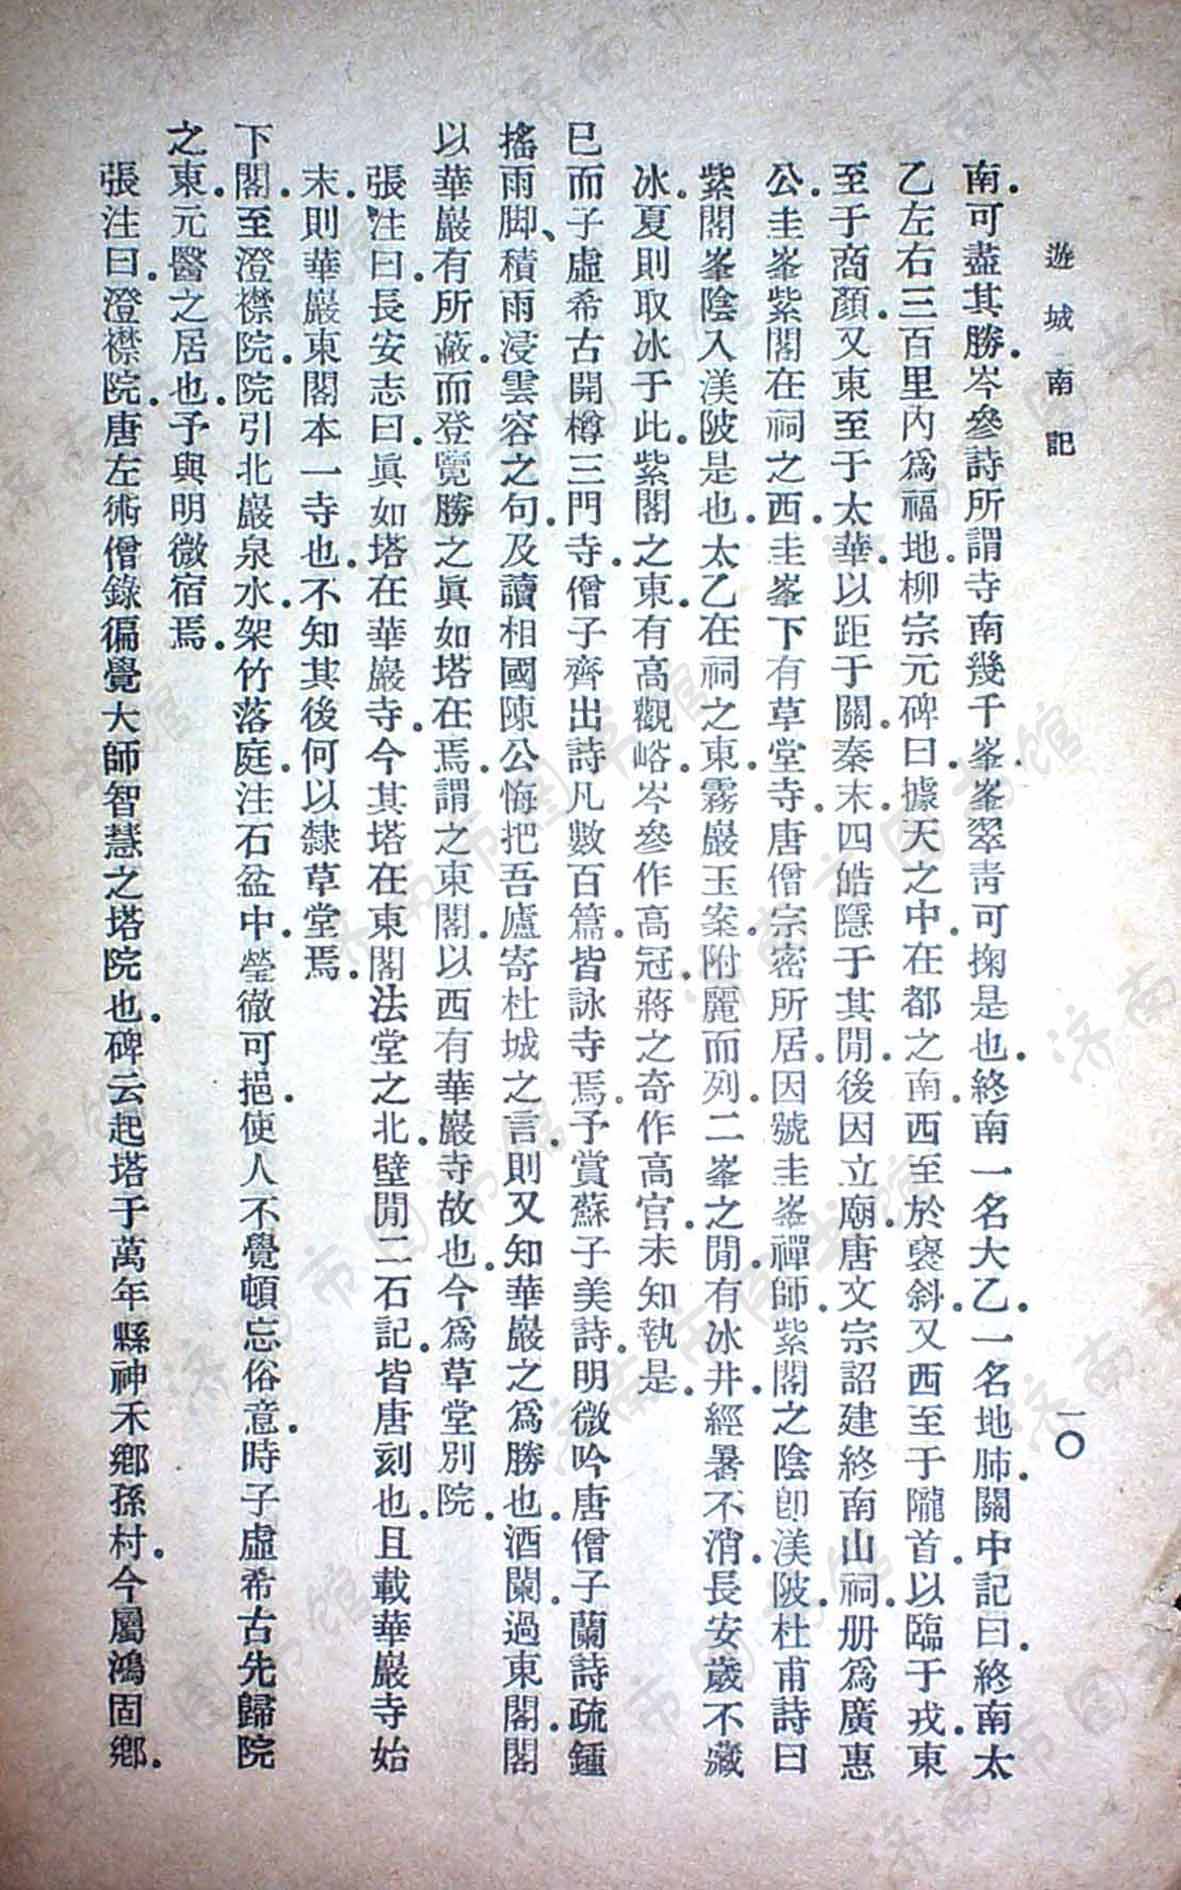 遊城南記
一〇
南。可盡其勝。岑參詩所謂寺南幾千峯。峯翠青可掬是也。終南一名大乙。一名地肺。關中記曰。終南太
乙左右三百里內爲福地。柳宗元碑曰。據天之中。在都之南。西至於褒斜。又西至于隴首。以臨于戎。東
至于商顏。又東至于太華。以距于關。秦末四皓隱于其閒。後因立廟。唐文宗詔建終南山祠。册爲廣惠
公。圭峯紫閣在祠之西。圭峯下有草堂寺。唐僧宗密所居。因號圭峯禪師。紫閣之陰卽渼陂。杜甫詩曰
紫閣峯陰入渼陂是也。太乙在祠之東。霧巖玉案。附麗而列。二峯之閒。有冰井。經暑不消。長安歲不藏
冰。夏則取冰于此。紫閣之東。有高觀峪。岑參作高冠。蔣之奇作高官。未知孰是。
已而子虛希古開樽三門。寺僧子齊出詩凡數百篇。皆詠寺焉。予賞蘇子美詩。明微吟唐僧子蘭詩。疏鍾
搖雨脚、積雨浸雲容之句。及讀相國陳公。悔把吾廬寄杜城之言。則又知華巖之爲勝也。酒闌。過東閣。閣
以華巖有所蔽。而登覽勝之。眞如塔在焉。謂之東閣。以西有華巖寺故也。今爲草堂別院。
張注曰。長安志曰。眞如塔在華巖寺。今其塔在東閣法堂之北。壁閒二石記。皆唐刻也。且載華巖寺始
末。則華巖東閣本一寺也。不知其後何以隸草堂焉。
下閣。至澄襟院。院引北巖泉水。架竹落庭。注石盆中。瑩徹可挹。使人不覺頓忘俗意。時子虛希古先歸院
之東。元醫之居也。予與明微宿焉。
張注曰。澄襟院。唐左術僧錄徧覺大師智慧之塔院也。碑云起塔于萬年縣神禾鄉孫村。今屬鴻固鄉。